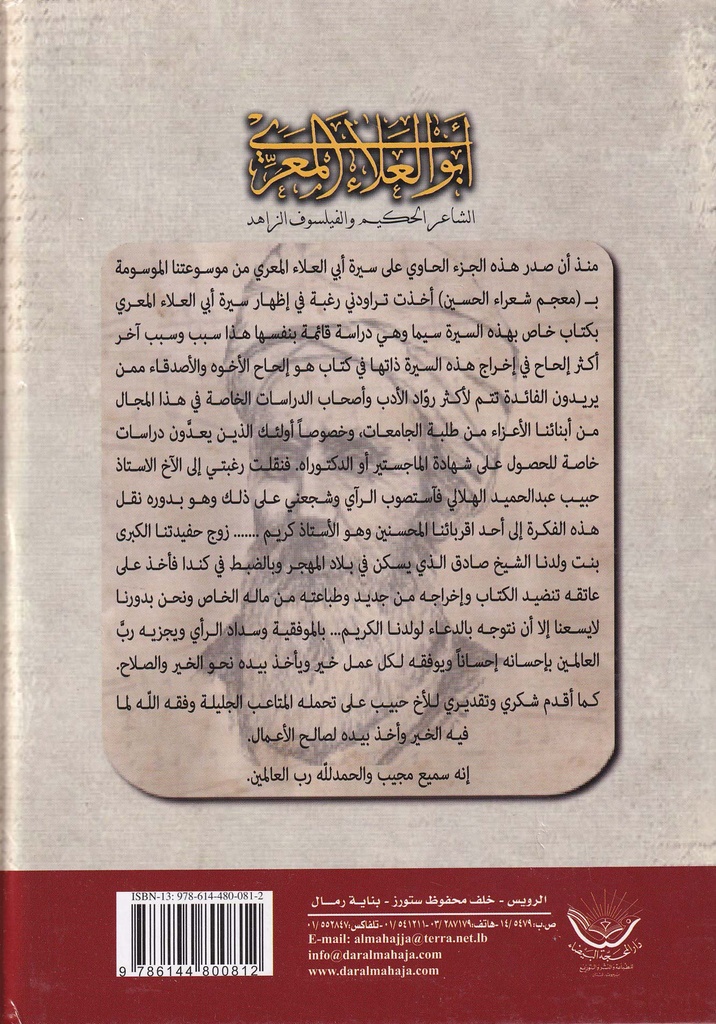 أبو العلاء المعري
الشاعر الحكيم والفيلسوف الزاهد
منذ أن صدر هذه الجزء الحاوي على سيرة أبي العلاء المعري من موسوعتنا الموسومة
بـ (معجم شعراء الحسين) أخذت تراودني رغبة في إظهار سيرة أبي العلاء المعري
بكتاب خاص بهذه السيرة سيما وهي دراسة قائمة بنفسها هذا سبب وسبب آخر
أكثر إلحاح في إخراج هذه السيرة ذاتها في كتاب هو إلحاح الأخوه والأصدقاء ممن
يريدون الفائدة تتم لأكثر روّاد الأدب وأصحاب الدراسات الخاصة في هذا المجال
من أبنائنا الأعزاء من طلبة الجامعات، وخصوصاً أولئك الذين يعدَّون دراسات
خاصة للحصول على شهادة الماجستير أو الدكتوراه. فنقلت رغبتي إلى الآخ الاستاذ
حبيب عبدالحميد الهلالي فآستصوب الرآي وشجعني على ذلك وهو بدوره نقل
هذه الفكرة إلى أحد اقربائنا المحسنين وهو الأستاذ كريم ....... زوج حفيدتنا الكبرى
بنت ولدنا الشيخ صادق الذي يسكن في بلاد المهجر وبالضبط في كندا فأخذ على
عاتقه تنضيد الكتاب وإخراجه من جديد وطباعته من ماله الخاص ونحن بدورنا
لايسعنا إلا أن نتوجه بالدعاء لولدنا الكريم... بالموفقية وسداد الرأي ويجزيه ربَّ
العالمين بإحسانه إحساناً ويوفقه لكل عمل خير ويأخذ بيده نحو الخير والصلاح.
كما أقدم شكري وتقديري للأخ حبيب على تحمله المتاعب الجليلة وفقه الله لما
فيه الخير وأخذ بيده لصالح الأعمال.
إنه سميع مجيب والحمدلله رب العالمين.
ISBN-13: 978-614-480-081-2
9 786144 800812
الرويس - خلف محفوظ ستورز - بناية رمال
ص.ب: ١٤/٥٤٧٩ - هاتف: ٠٣/٢٨٧١٧٩ - ٠١/٥٤١٢١١ - تلفاكس: ٠١/٥٥٢٨٤٧
E-mail: almahajja@terra.net.lb
info@daralmahaja.com
www.daralmahaja.com
دار المحجة البيضاء
للطباعة والنشر والتوزيع